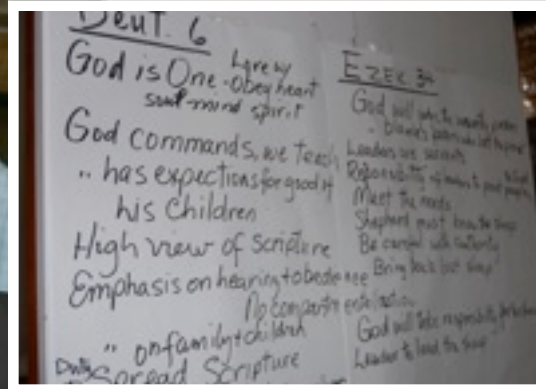 Deut. 6
God is One - Obey heart
soul mind spirit
God commands, we teach
" has expections for good of
his Children
High view of Scripture
Emphasis on hearing to obedence
No compartmentalization
" on family + children
Daily
Spread Scripture
Ezek. 34
God will
Leaders are servants
Responsibility of leaders to
Meet the needs
Shepherd must know the sheep
Be careful with authority
Bring back lost sheep
God will take responsibility for
Leader to lead the sheep